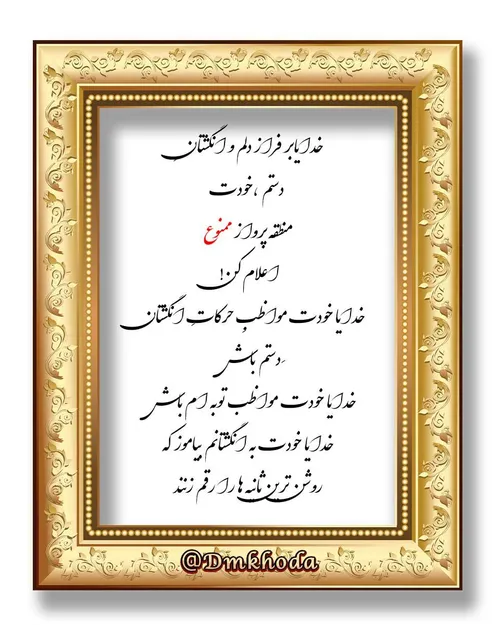 خدایا بر فراز دلم و انگشتان
دستم ،خودت
منطقه پرواز ممنوع
اعلام کن!
خدایا خودت مواظبِ حرکاتِ انگشتان
ِدستم باش
خدایا خودت مواظب توبه ام باش
خدایا خودت به انگشتانم بیاموز که
روشن ترین ثانیه ها را رقم زنند
@Dmkhoda